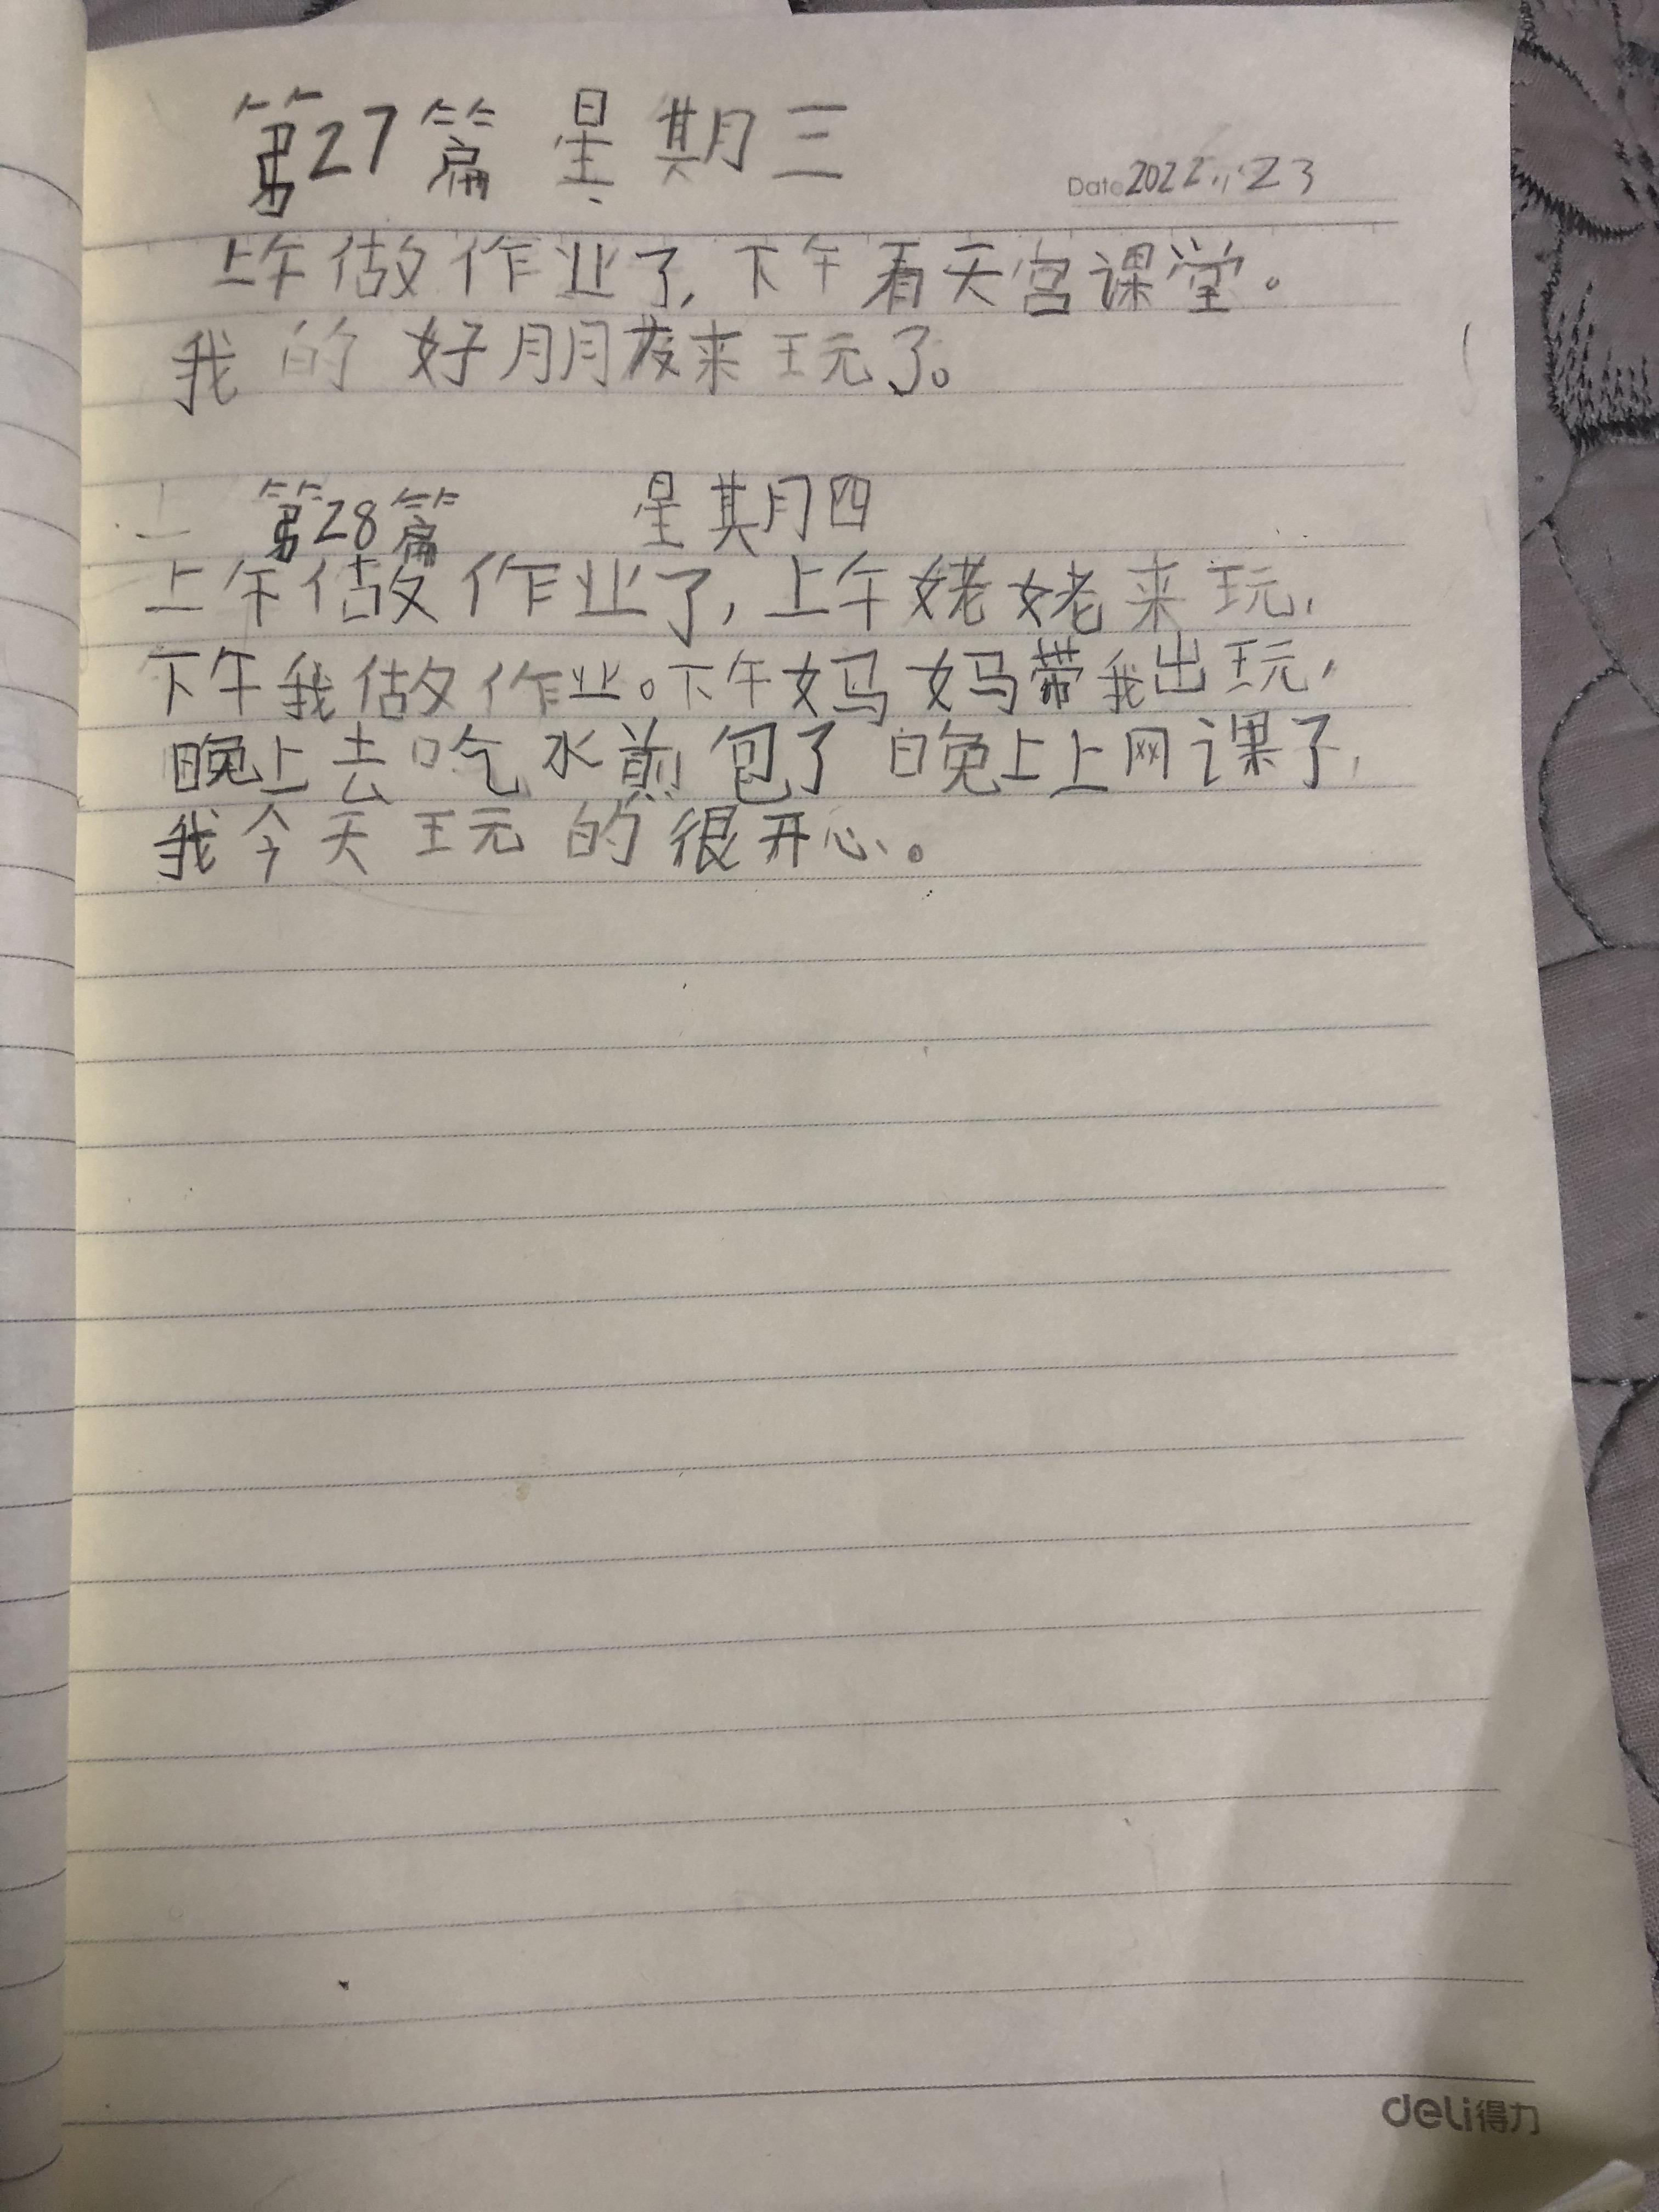 第27篇 星期三
Date 2022.23
上午做作业了,下午看天宫课堂。
我的好朋友来玩了。
第28篇 星期四
上午做作业了,上午姥姥来玩,
下午我做作业。下午妈妈带我出玩,
晚上去吃水煎包了 晚上上网课了,
我今天玩的很开心。
deli得力